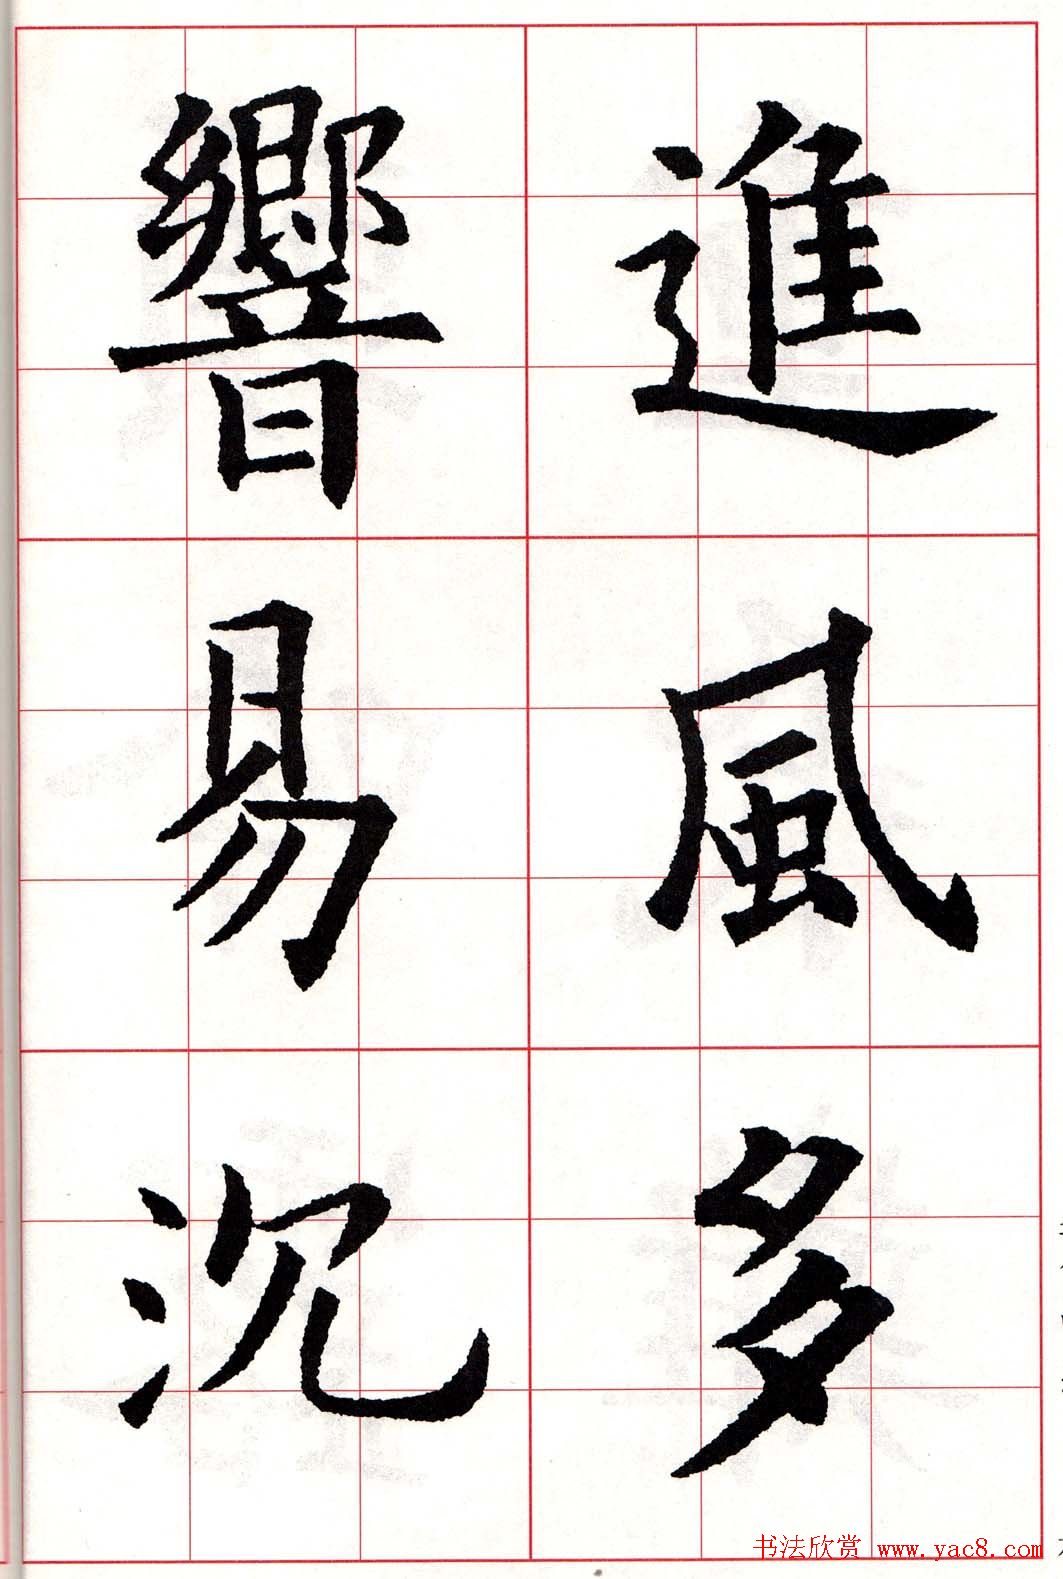 進風多
響易沉
书法欣赏 www.yac8.com